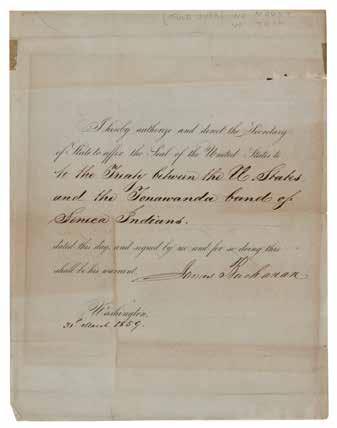 I hereby authorize and direct the Secretary
of State to affix the Seal of the United States to
to the Treaty between the U. States
and the Tonawanda band of
Seneca Indians.
dated this day, and signed by me and for so doing this
shall be his warrant.
James Buchanan
Washington,
31st March 1859.